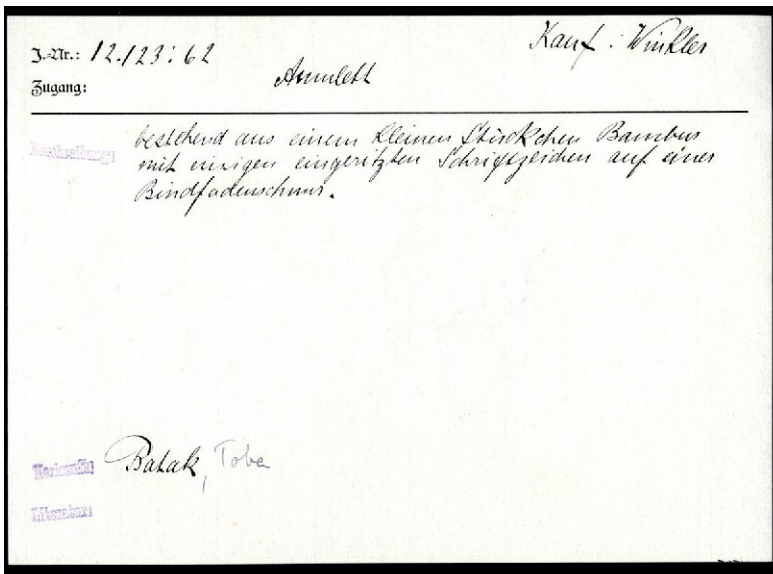 J.-Nr.: 12.123:62 Kauf: Winkler
Zugang: Amulett
Beschreibung: bestehend aus einem kleinen Stückchen Bambus
mit einigen eingeritzten Schriftzeichen auf einer
Bindfadenschnur.
Herkunft: Batak, Toba
Literatur: